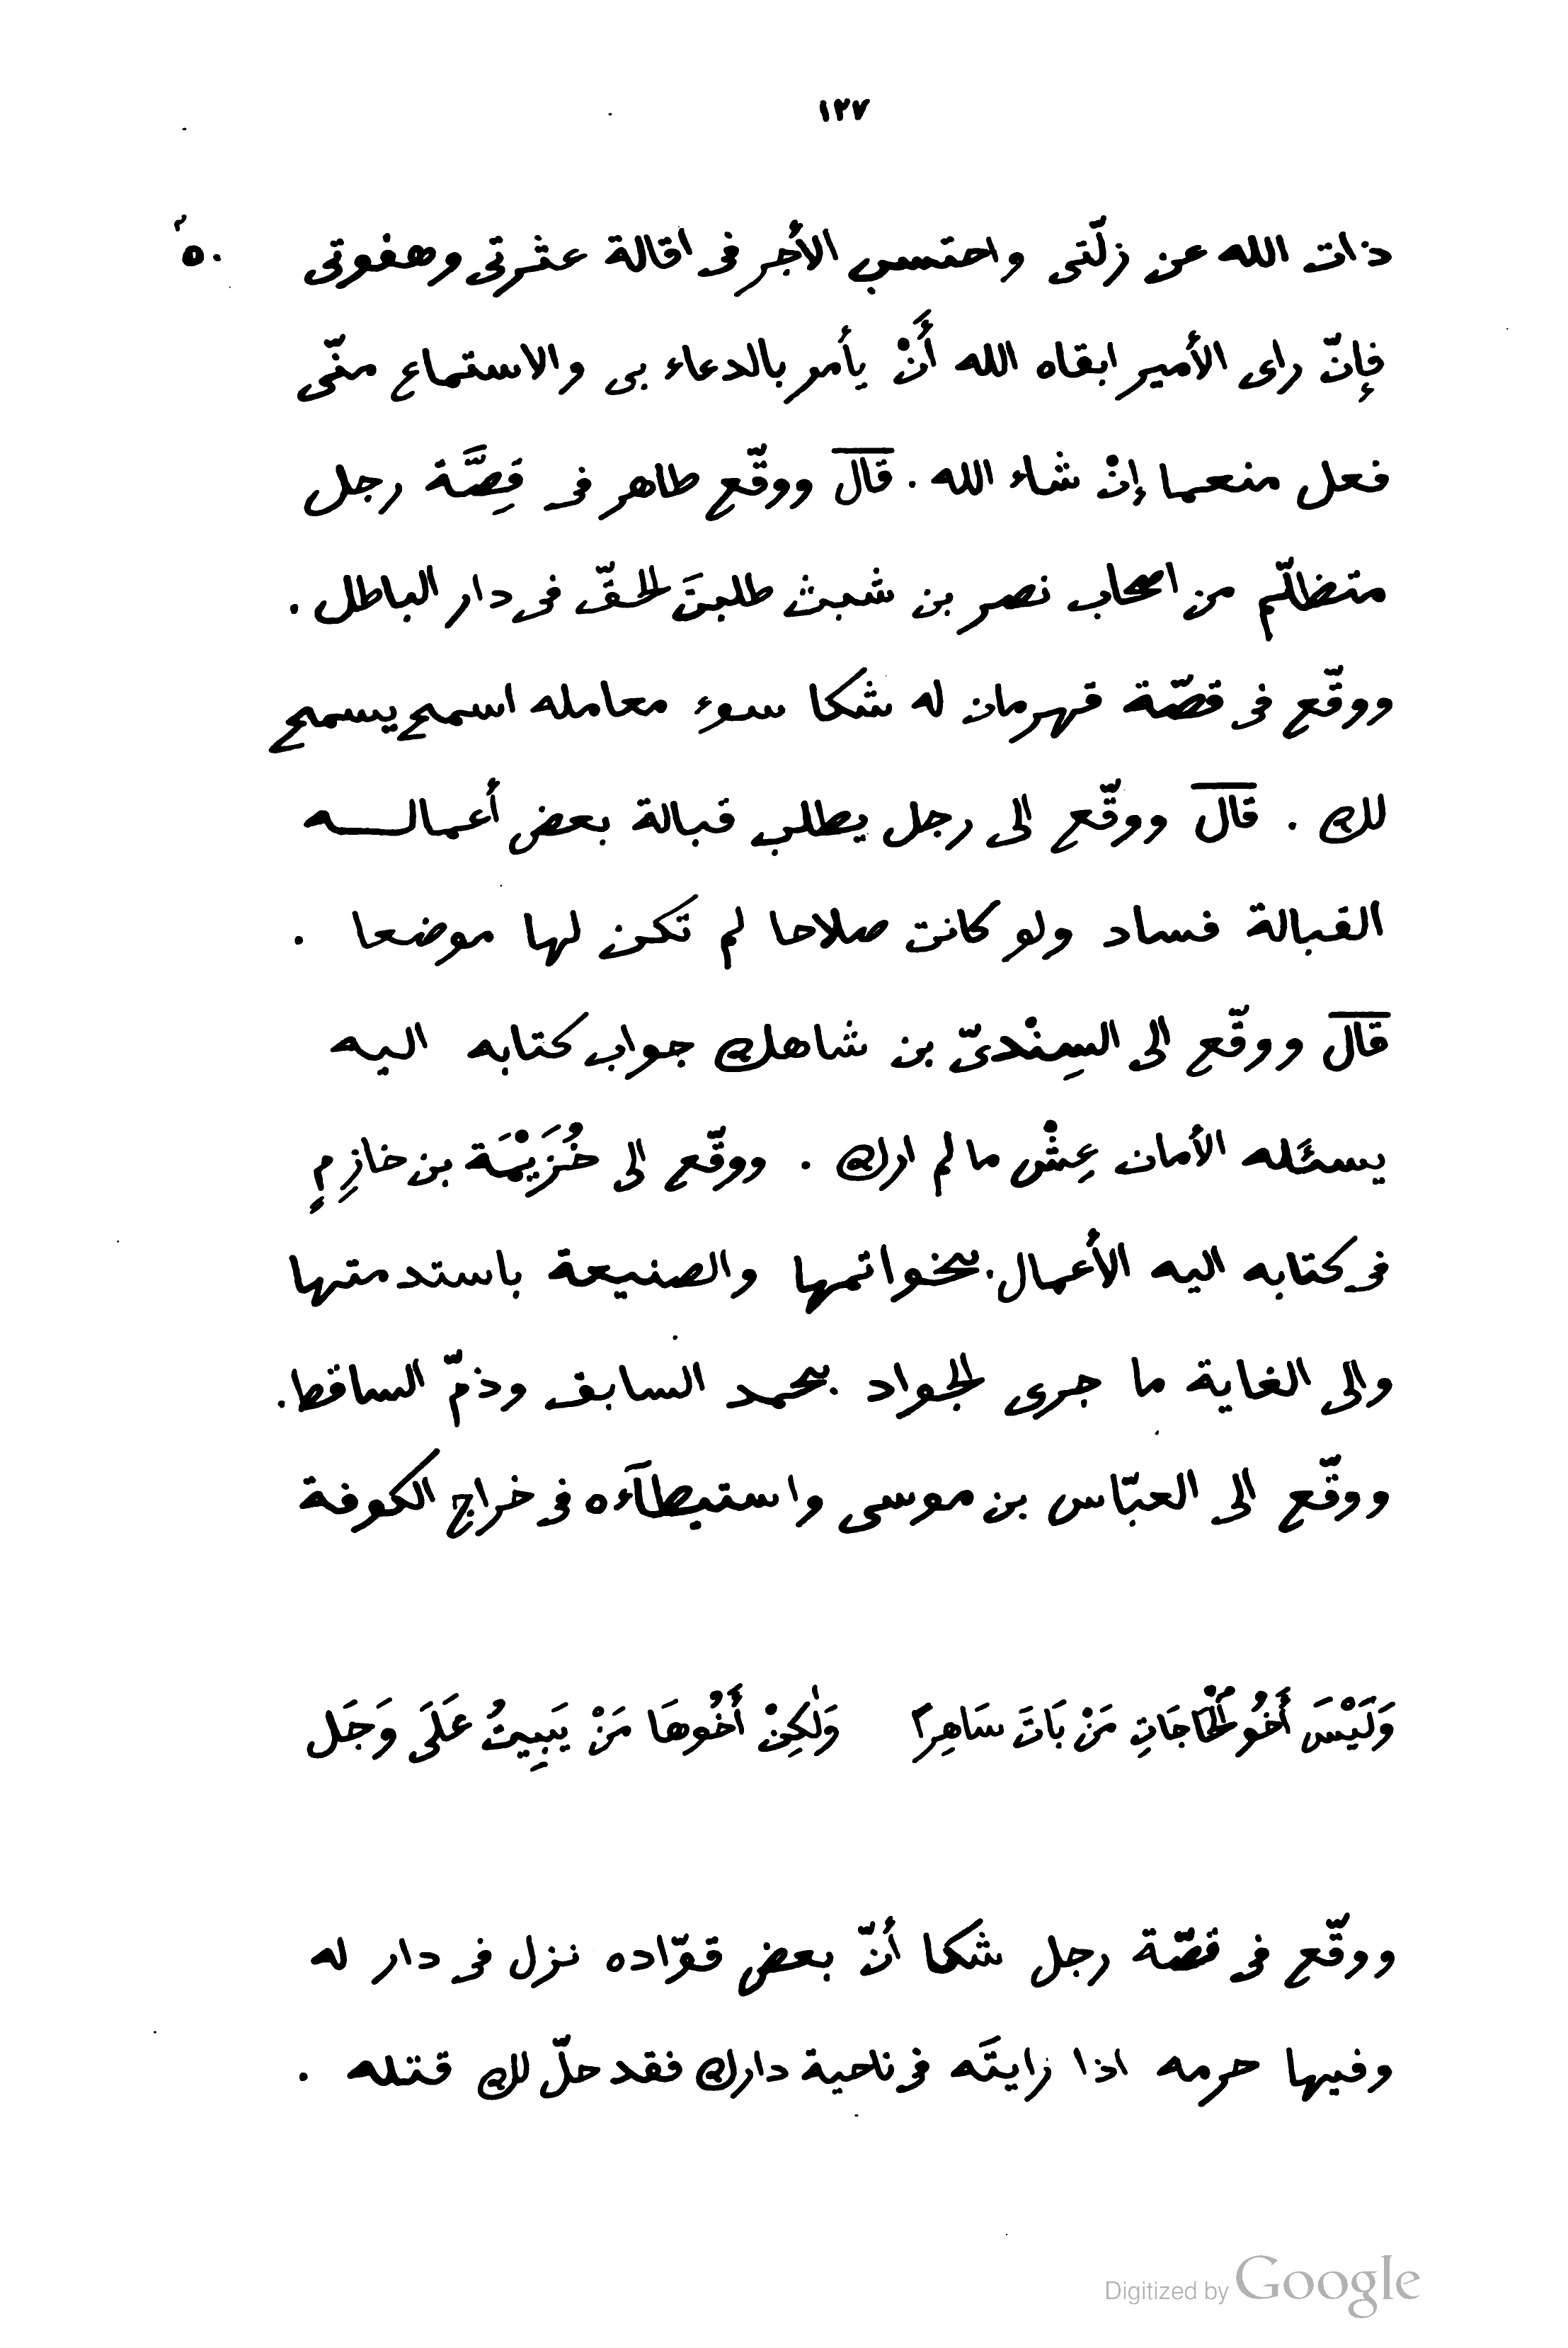 ١٢٧
ذات الله عن زلّتى واحتسب الأجر فى اقالة عثرتى وهفوتى ٥٠
فإنّ راى الأمير ابقاه الله أَنْ يأمر بالدعاء بى والاستماع منّى
فعل منعما إنْ شاء الله . قال ووقّع طاهر فى قِصَّة رجل
متضالّم من اصحاب نصر بن شبث طلبتَ الحقّ فى دار الباطل .
ووقّع فى قصّة قهرمان له شكا سوء معامله اسمح يسمح
لك . قال ووقّع الى رجل يطلب قبالة بعض أعمالـــه
القبالة فساد ولو كانت صلاحا لم تكن لها موضعا .
قال ووقّع الى السِنْدىّ بن شاهك جواب كتابه اليه
يسئله الأمان عِشْ ما لم ارك . ووقّع الى خُزَيْمَة بن خازِمٍ
فى كتابه اليه الأعمال بخواتمها والصنيعة باستدمتها
والى الغاية ما جرى الجواد بحمد السابق وذمّ الساقط.
ووقّع الى العبّاس بن موسى واستبطآءه فى خراج الكوفة
وَلَيْسَ أَخُو ٱلْحَاجَاتِ مَنْ بَاتَ سَاهِرًا وَلٰكِنْ أَخُوهَا مَنْ يَبِيتُ عَلَى وَجَل
ووقّع فى قصّة رجل شكا أنّ بعض قوّاده نزل فى دار له
وفيها حرمه اذا رايتَه فى ناحية دارك فقد حلّ لك قتله .
Digitized by Google